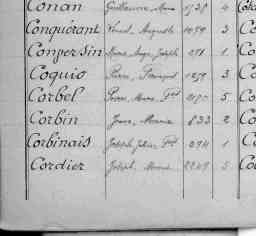 Conan Guillaume, Marie 1738 4
Conquérant Vincent, Auguste 1059 3 Co
Conpersin Marie, Ange, Joseph 271 1 Co
Coquio Pierre, François 1257 3 Co
Corbel Pierre, Marie 5 Co
Corbin Jean, Marie 833 2 Co
Corbinais Joseph, Julien 294 1 Co
Cordier Joseph, Marie 2249 5 Co